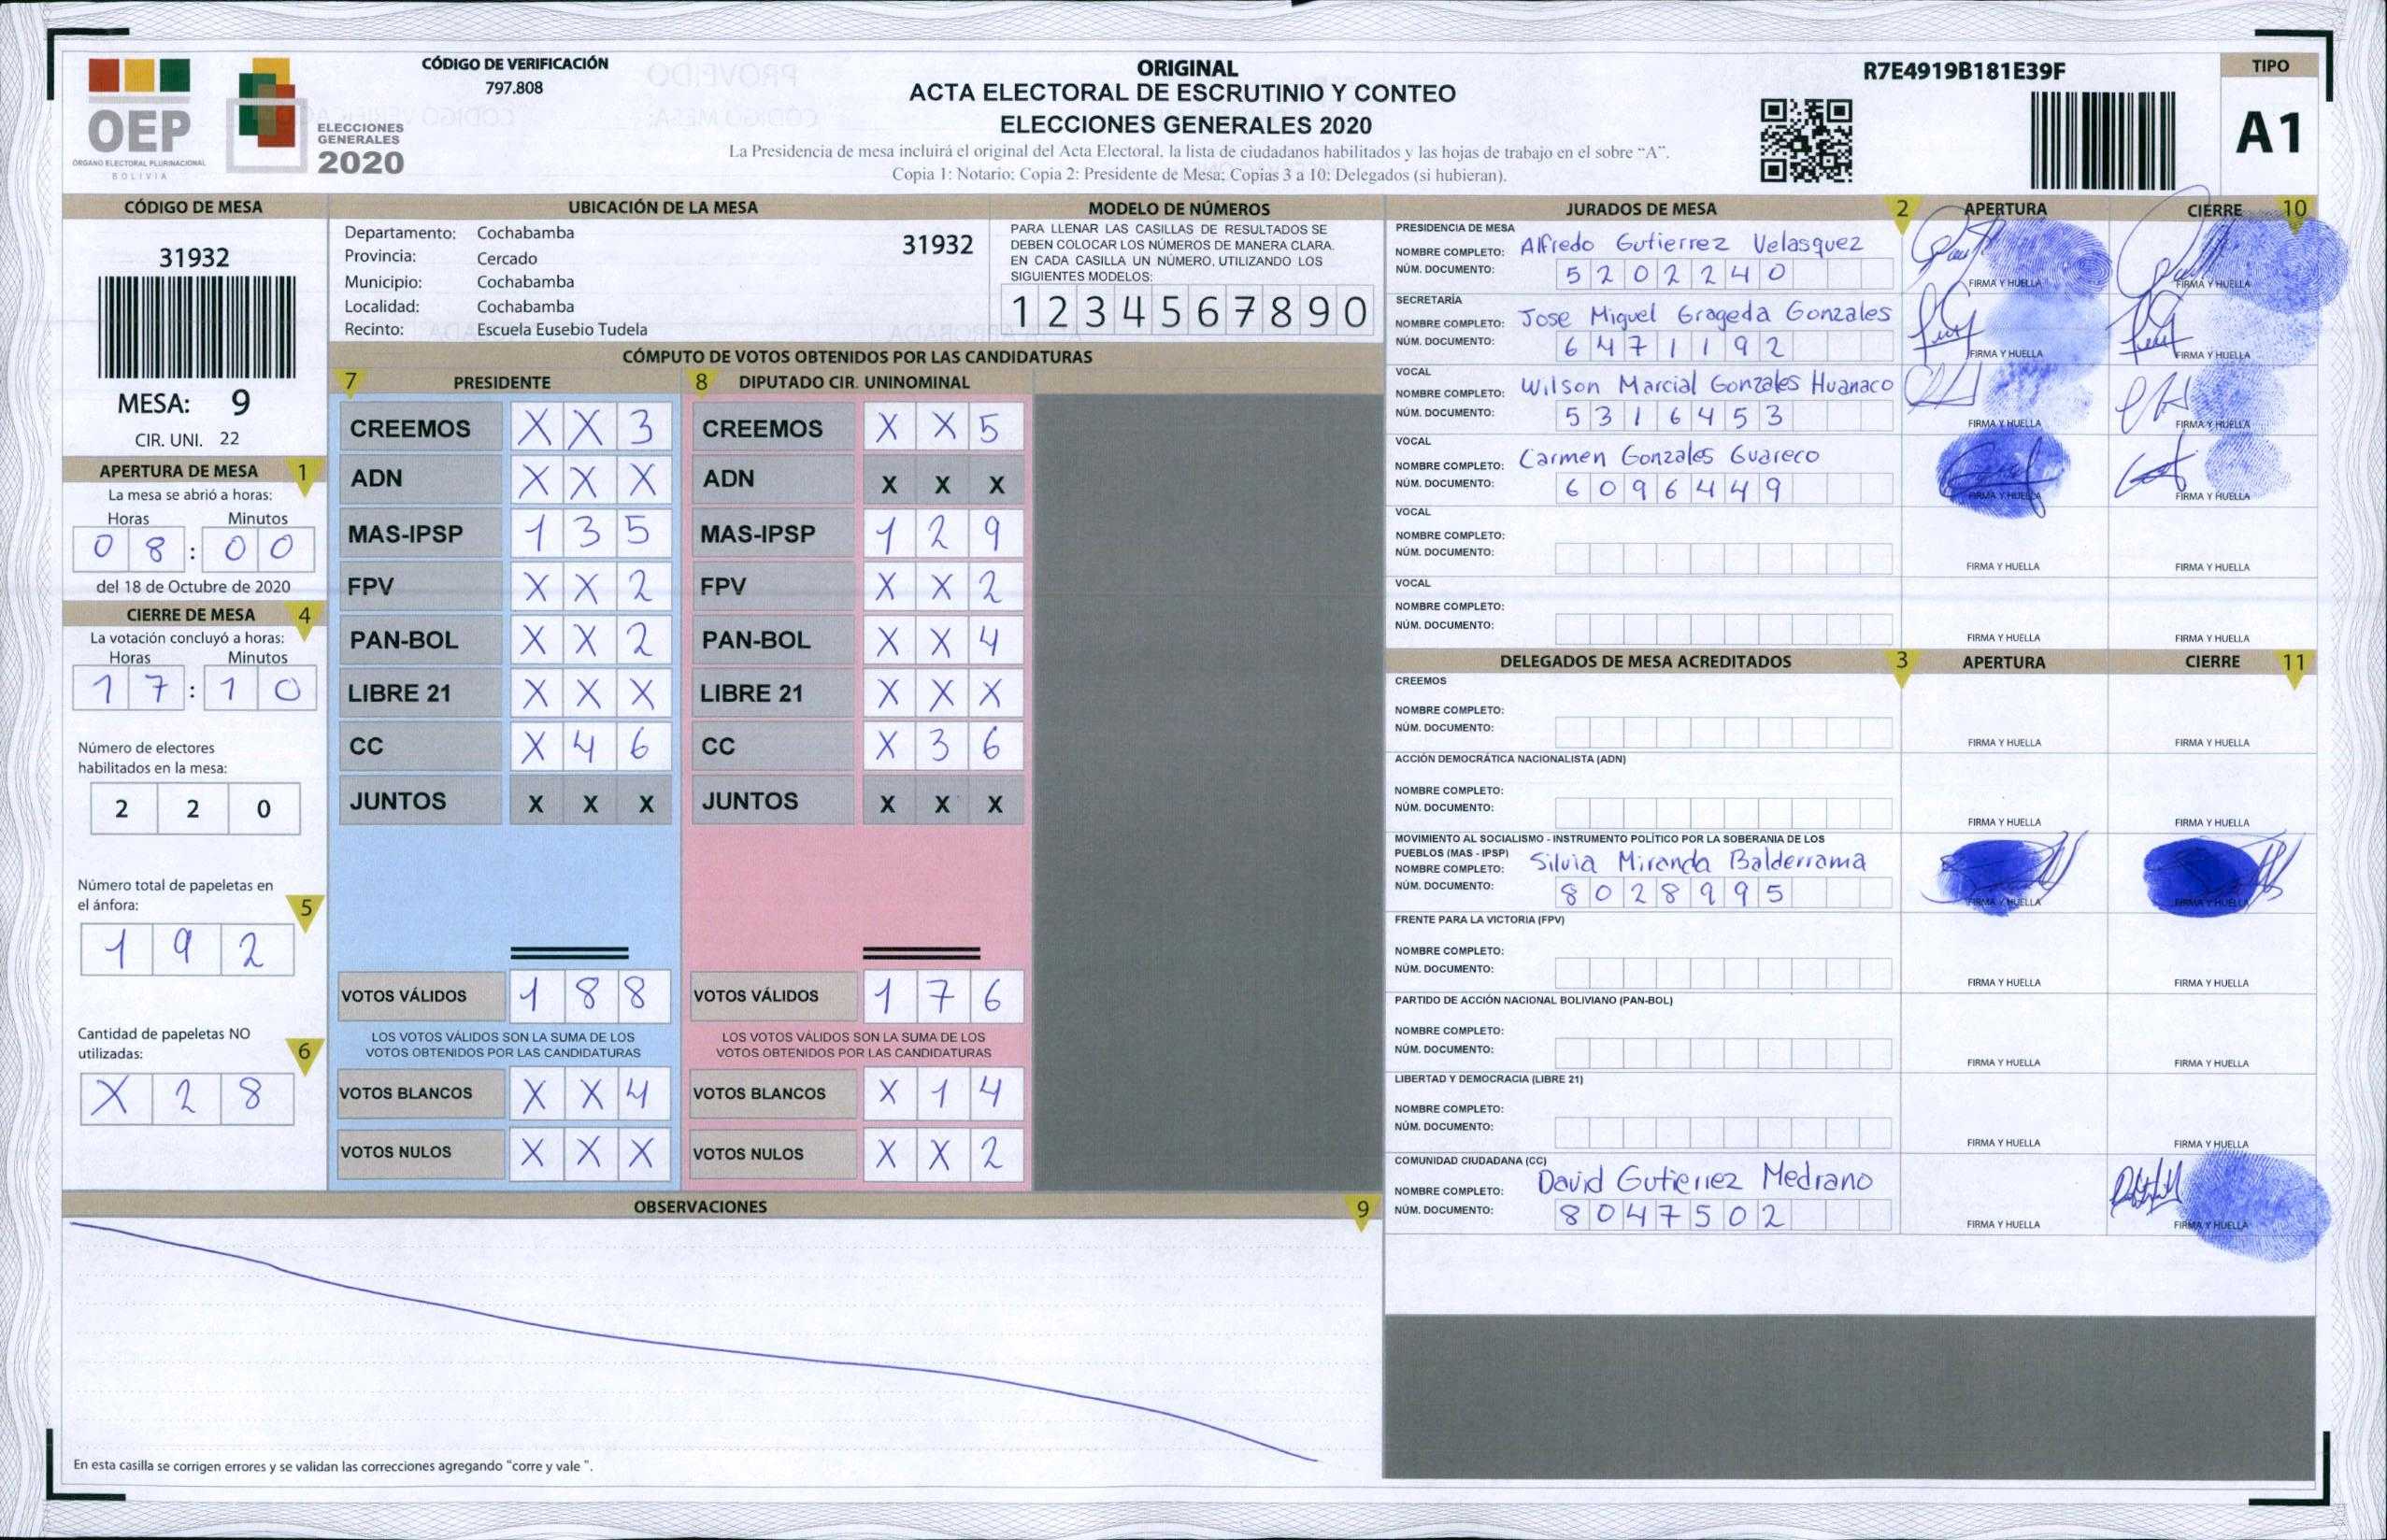 CÓDIGO DE VERIFICACIÓN
797.808
OEP
ÓRGANO ELECTORAL PLURINACIONAL
BOLIVIA
ELECCIONES
GENERALES
2020
ORIGINAL
ACTA ELECTORAL DE ESCRUTINIO Y CONTEO
ELECCIONES GENERALES 2020
La Presidencia de mesa incluirá el original del Acta Electoral, la lista de ciudadanos habilitados y las hojas de trabajo en el sobre "A".
Copia 1: Notario; Copia 2: Presidente de Mesa; Copias 3 a 10: Delegados (si hubieran).
R7E4919B181E39F
TIPO
A1
CÓDIGO DE MESA
31932
MESA: 9
CIR. UNI. 22
APERTURA DE MESA 1
La mesa se abrió a horas:
Horas Minutos
0 8 : 0 0
del 18 de Octubre de 2020
CIERRE DE MESA 4
La votación concluyó a horas:
Horas Minutos
1 7 : 1 0
Número de electores
habilitados en la mesa:
2 2 0
Número total de papeletas en
el ánfora: 5
1 9 2
Cantidad de papeletas NO
utilizadas: 6
X 2 8
UBICACIÓN DE LA MESA
Departamento: Cochabamba 31932
Provincia: Cercado
Municipio: Cochabamba
Localidad: Cochabamba
Recinto: Escuela Eusebio Tudela
MODELO DE NÚMEROS
PARA LLENAR LAS CASILLAS DE RESULTADOS SE
DEBEN COLOCAR LOS NÚMEROS DE MANERA CLARA.
EN CADA CASILLA UN NÚMERO, UTILIZANDO LOS
SIGUIENTES MODELOS:
1 2 3 4 5 6 7 8 9 0
CÓMPUTO DE VOTOS OBTENIDOS POR LAS CANDIDATURAS
7 PRESIDENTE 8 DIPUTADO CIR. UNINOMINAL
CREEMOS X X 3 CREEMOS X X 5
ADN X X X ADN X X X
MAS-IPSP 1 3 5 MAS-IPSP 1 2 9
FPV X X 2 FPV X X 2
PAN-BOL X X 2 PAN-BOL X X 4
LIBRE 21 X X X LIBRE 21 X X X
CC X 4 6 CC X 3 6
JUNTOS X X X JUNTOS X X X
VOTOS VÁLIDOS 1 8 8 VOTOS VÁLIDOS 1 7 6
LOS VOTOS VÁLIDOS SON LA SUMA DE LOS LOS VOTOS VÁLIDOS SON LA SUMA DE LOS
VOTOS OBTENIDOS POR LAS CANDIDATURAS VOTOS OBTENIDOS POR LAS CANDIDATURAS
VOTOS BLANCOS X X 4 VOTOS BLANCOS X 1 4
VOTOS NULOS X X X VOTOS NULOS X X 2
OBSERVACIONES 9
En esta casilla se corrigen errores y se validan las correcciones agregando "corre y vale ".
JURADOS DE MESA 2 APERTURA CIERRE 10
PRESIDENCIA DE MESA
NOMBRE COMPLETO: Alfredo Gutierrez Velasquez
NÚM. DOCUMENTO: 5 2 0 2 2 4 0
FIRMA Y HUELLA FIRMA Y HUELLA
SECRETARÍA
NOMBRE COMPLETO: Jose Miguel Grageda Gonzales
NÚM. DOCUMENTO: 6 4 7 1 1 9 2
FIRMA Y HUELLA FIRMA Y HUELLA
VOCAL
NOMBRE COMPLETO: Wilson Marcial Gonzales Huanaco
NÚM. DOCUMENTO: 5 3 1 6 4 5 3
FIRMA Y HUELLA FIRMA Y HUELLA
VOCAL
NOMBRE COMPLETO: Carmen Gonzales Guareco
NÚM. DOCUMENTO: 6 0 9 6 4 4 9
FIRMA Y HUELLA FIRMA Y HUELLA
VOCAL
NOMBRE COMPLETO:
NÚM. DOCUMENTO:
FIRMA Y HUELLA FIRMA Y HUELLA
VOCAL
NOMBRE COMPLETO:
NÚM. DOCUMENTO:
FIRMA Y HUELLA FIRMA Y HUELLA
DELEGADOS DE MESA ACREDITADOS 3 APERTURA CIERRE 11
CREEMOS
NOMBRE COMPLETO:
NÚM. DOCUMENTO:
FIRMA Y HUELLA FIRMA Y HUELLA
ACCIÓN DEMOCRÁTICA NACIONALISTA (ADN)
NOMBRE COMPLETO:
NÚM. DOCUMENTO:
FIRMA Y HUELLA FIRMA Y HUELLA
MOVIMIENTO AL SOCIALISMO - INSTRUMENTO POLÍTICO POR LA SOBERANIA DE LOS
PUEBLOS (MAS - IPSP)
NOMBRE COMPLETO: Silvia Miranda Balderrama
NÚM. DOCUMENTO: 8 0 2 8 9 9 5
FIRMA Y HUELLA FIRMA Y HUELLA
FRENTE PARA LA VICTORIA (FPV)
NOMBRE COMPLETO:
NÚM. DOCUMENTO:
FIRMA Y HUELLA FIRMA Y HUELLA
PARTIDO DE ACCIÓN NACIONAL BOLIVIANO (PAN-BOL)
NOMBRE COMPLETO:
NÚM. DOCUMENTO:
FIRMA Y HUELLA FIRMA Y HUELLA
LIBERTAD Y DEMOCRACIA (LIBRE 21)
NOMBRE COMPLETO:
NÚM. DOCUMENTO:
FIRMA Y HUELLA FIRMA Y HUELLA
COMUNIDAD CIUDADANA (CC)
NOMBRE COMPLETO: David Gutierrez Medrano
NÚM. DOCUMENTO: 8 0 4 7 5 0 2
FIRMA Y HUELLA FIRMA Y HUELLA